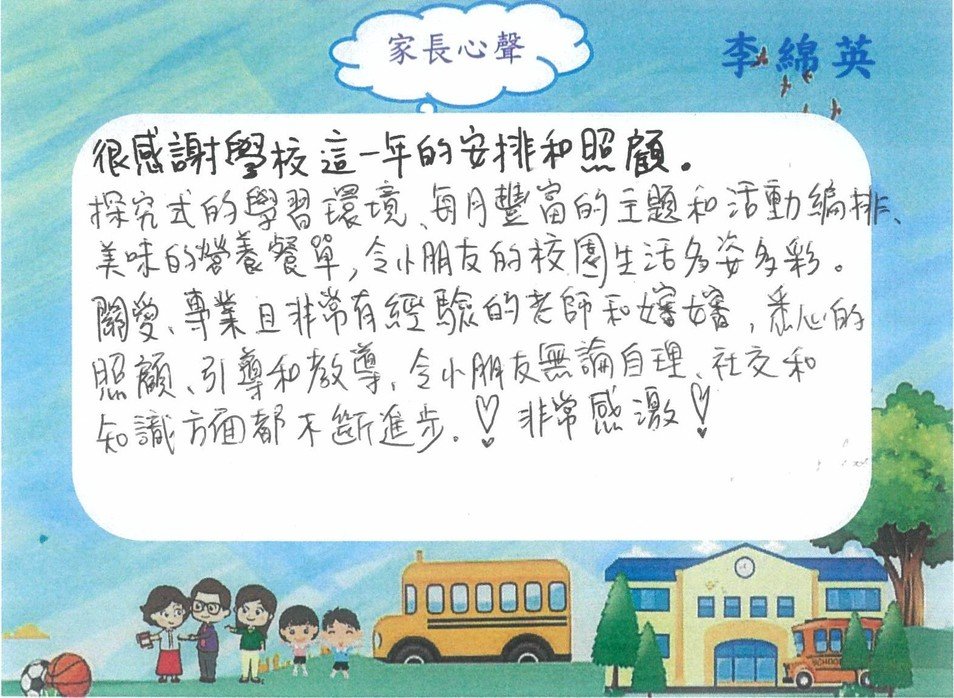 家長心聲
李綿英
很感謝學校這一年的安排和照顧。
探究式的學習環境、每月豐富的主題和活動編排、
美味的營養餐單,令小朋友的校園生活多姿多彩。
關愛、專業且非常有經驗的老師和嬸嬸,悉心的
照顧、引導和教導,令小朋友無論自理、社交和
知識方面都不斷進步.♡ 非常感激♡
SCHOOL